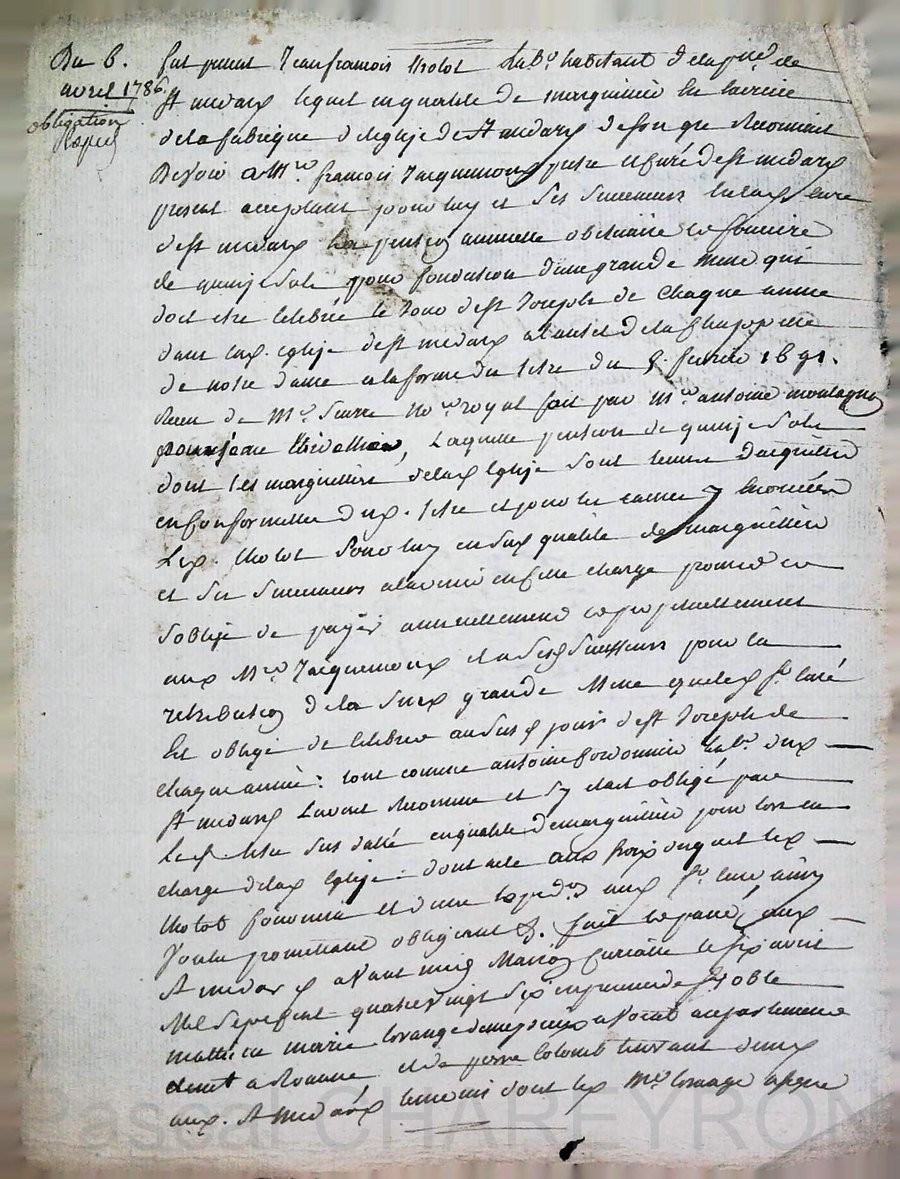 Du 6.
avril 1786.
obligation
fut present Jean francois Tholot Lab.r habitant de la p.sse de
St medard lequel en qualité de marguillier en lannee
de la fabrique deleglise de St medard de son gre Reconnait
Devoir a M.re francois Jacquemons pretre et curé de St medard
present acceptant pour luy et ses successeurs curé
de St medard la pension annuelle obituaire et fonciere
de quinze sols pour fondation dune grande Messe qui
doit etre Celebrée le Jour de St Joseph de Chaque année
dans lad. eglise de St medard a lautel de la Chapelle
de notre dame a la forme du titre du 8. fevrier 1691.
Recu de M.e Not.re royal fait par M.re antoine montagne
pour Jean thivellier, Laquelle pension de quinze sols
dont les marguilliers de lad. Eglise sont tenus dacquitter
en Conformité dud. titre et pour les causes y Enoncées
Led. Tholot pour luy en sad. qualité de marguillier
et ses successeurs a lavenir en Cette charge promet et
soblige de payer annuellement et perpetuellement
aud. M.re Jacquemons et a sesd. successeurs pour la
retribution de la susd. grande Messe que led. S.r Curé
Est obligé de Celebrer aususd. jour de St Joseph de
Chaque année: tout comme antoine Lab.r dud.
St medard Lavoit Reconnu et sy etait obligé par
led. titre sus datté en qualité de marguillier pour lors en
charge de lad. Eglise: dont acte aux frais duquel led.
Tholot sera une expedon aud. S.r curé ainsy
Voulu promettant obligeant &. fait et passé, aud.
St medard avant midy Maison Curialle le six avril
Mil Sept Cent quatre vingt Six en presence de Noble
mathieu marie avocat en parlement
demt a Roanne, et de pierre Colomb demt
aud. St medard temoins dont led. M.e signé
Pascal CHAREYRON